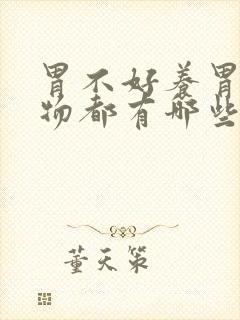 胃不好养胃
物都有哪些
董天策